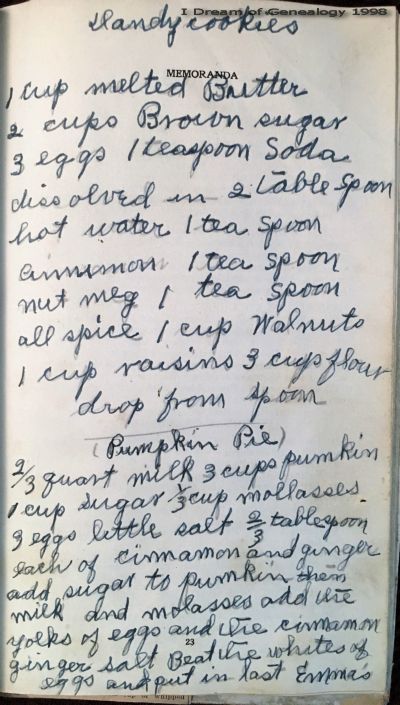 I Dream of Genealogy 1998
Handy cookies
MEMORANDA
1 cup melted Butter
2 cups Brown sugar
3 eggs 1 teaspoon Soda
dissolved in 2 table spoon
hot water 1 tea spoon
cinnamon 1 tea spoon
nut meg 1 tea spoon
all spice 1 cup Walnuts
1 cup raisins 3 cups flour
drop from spoon
(Pumpkin Pie)
2/3 quart milk 3 cups pumkin
1 cup sugar 1/3 cup mollasses
3 eggs little salt 2/3 tablespoon
each of cinnamon and ginger
add sugar to pumkin then
milk and molasses add the
yolks of eggs and the cinnamon
23
ginger salt Beat the whites of
eggs and put in last Emma's
cup of whipped